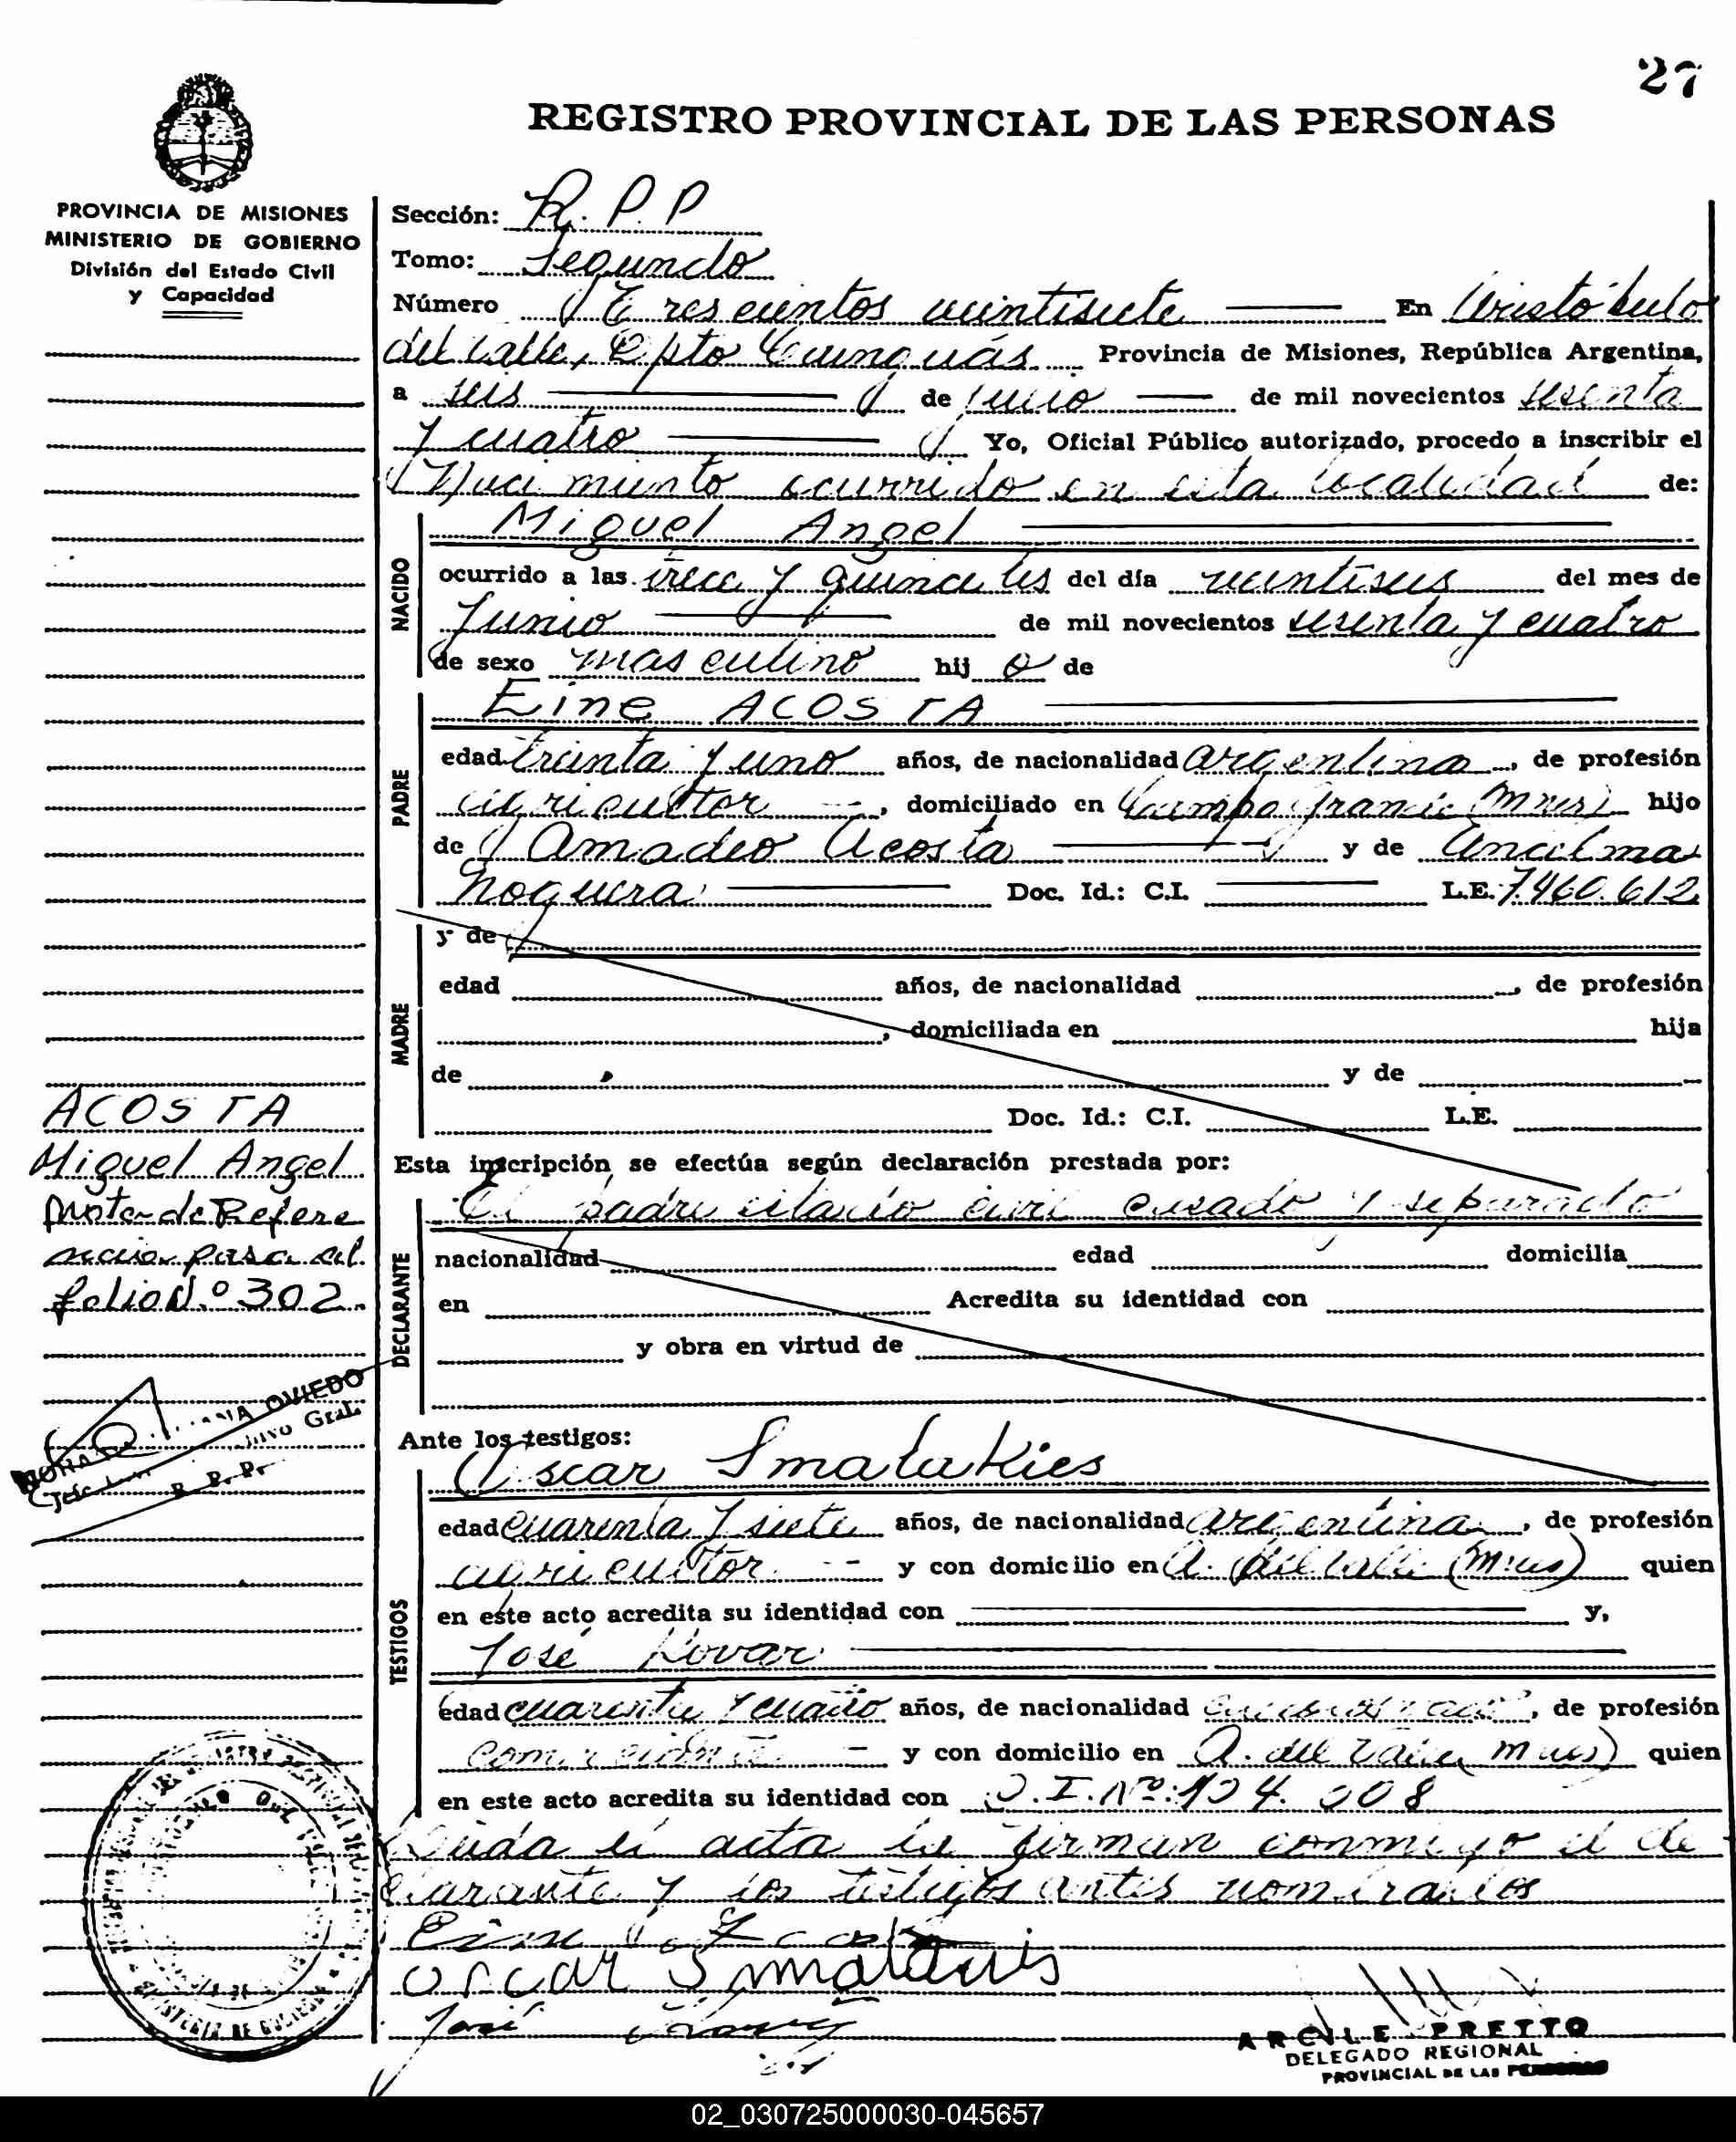 27
REGISTRO PROVINCIAL DE LAS PERSONAS
PROVINCIA DE MISIONES
MINISTERIO DE GOBIERNO
División del Estado Civil
y Capacidad
Sección: R. P. P
Tomo: Segundo
Número Trescientos veintisiete En Aristóbulo
del Valle, Dpto Cainguás Provincia de Misiones, República Argentina,
a seis de julio de mil novecientos sesenta
y cuatro Yo, Oficial Público autorizado, procedo a inscribir el
Nacimiento ocurrido en esta localidad de:
NACIDO
Miguel Angel
ocurrido a las trece y quince hs del día veintiseis del mes de
Junio de mil novecientos sesenta y cuatro
de sexo masculino hij o de
PADRE
Eine ACOSTA
edad treinta y uno años, de nacionalidad argentina, de profesión
agricultor, domiciliado en Campo Grande (Mnes) hijo
de Amadeo Acosta y de
Noguera Doc. Id.: C.I. L.E. 7.460.612
MADRE
y de
edad años, de nacionalidad , de profesión
, domiciliada en hija
de y de
Doc. Id.: C.I. L.E.
ACOSTA
Miguel Angel
Nota de Refere
ncia pasa al
folio N.º 302
OVIEDO
Gral.
R. P. P.
Esta inscripción se efectúa según declaración prestada por:
DECLARANTE
El padre citado civil casado y separado
nacionalidad edad domicilia
en Acredita su identidad con
y obra en virtud de
Ante los testigos:
TESTIGOS
Oscar Smalukies
edad cuarenta y siete años, de nacionalidad argentina, de profesión
agricultor y con domicilio en A. del Valle (Mnes) quien
en este acto acredita su identidad con y,
José Kovar
edad cuarenta y cuatro años, de nacionalidad , de profesión
comerciante y con domicilio en A. del Valle (Mnes) quien
en este acto acredita su identidad con
Leida el acta la firman conmigo el de
clarante y los testigos antes nombrados
Oscar
José
PRETTO
DELEGADO REGIONAL
PROVINCIAL DE LAS PERSONAS
02_030725000030-045657